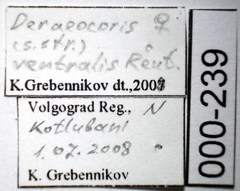 Deraeocoris ♀
(s.str.)
ventralis Reut.
K.Grebennikov dt.,200
Volgograd Reg., N
Kotlubani
1.07.2008
K. Grebennikov
000-239